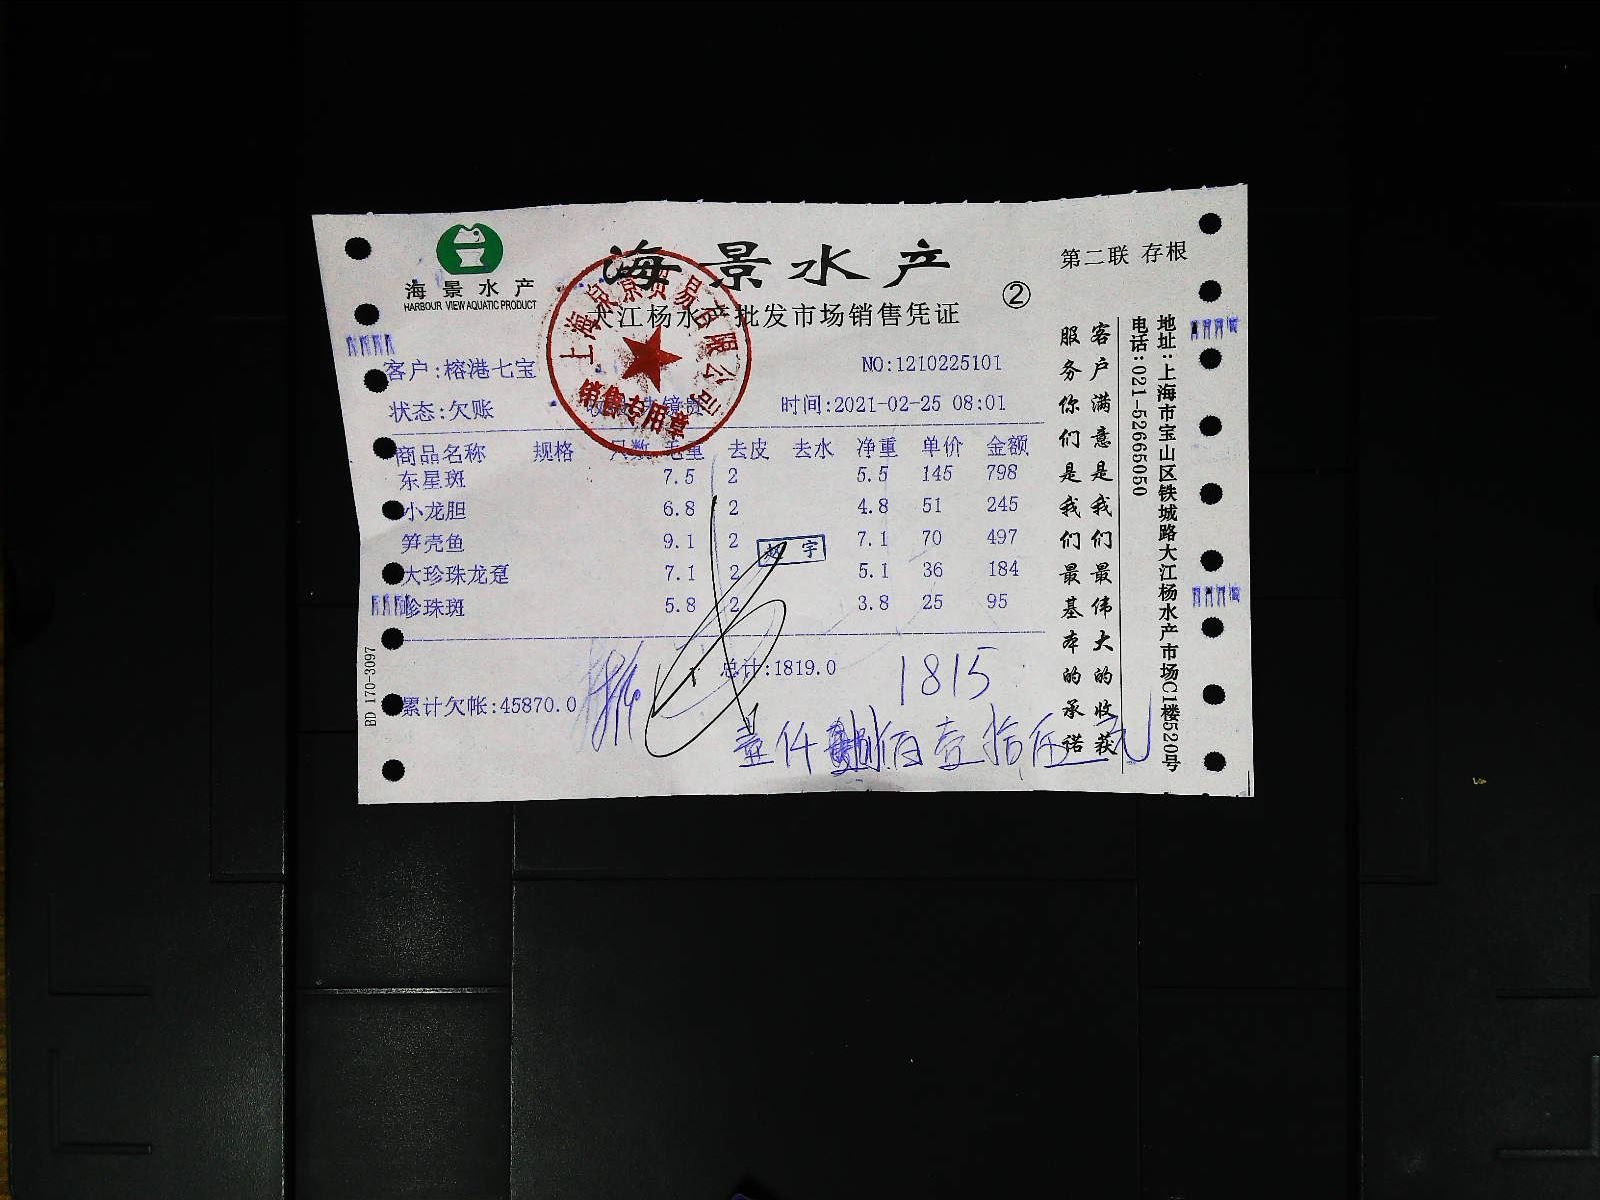 海景水产
HARBOUR VIEW AQUATIC PRODUCT
海景水产
大江杨水产批发市场销售凭证
第二联 存根
②
上海泉景贸易有限公司
销售专用章
客户:榕港七宝
NO:1210225101
状态:欠账
时间:2021-02-25 08:01
商品名称 规格 只数 毛重 去皮 去水 净重 单价 金额
东星斑 7.5 2 5.5 145 798
小龙胆 6.8 2 4.8 51 245
笋壳鱼 9.1 2 7.1 70 497
大珍珠龙趸 7.1 2 5.1 36 184
珍珠斑 5.8 2 3.8 25 95
赵宇
总计:1819.0
1815
累计欠帐:45870.0
壹仟捌佰壹拾伍元
BD 170-3097
客户满意是我们最伟大的收获
服务你们是我们最基本的承诺
地址:上海市宝山区铁城路大江杨水产市场C1楼520号
电话:021-52665050